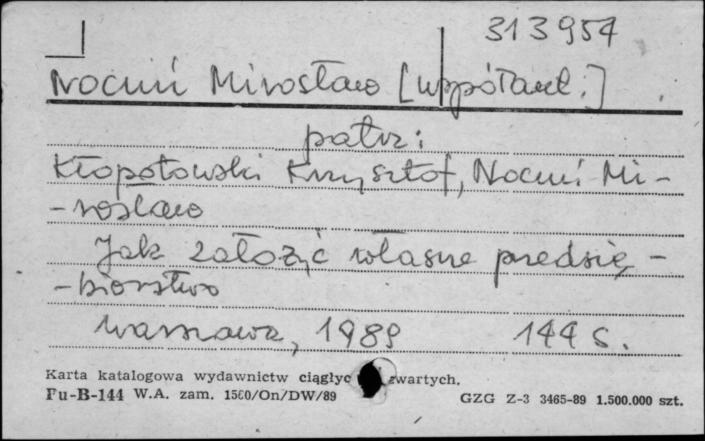 313954
Nocuń Mirosław [współaut.]
patrz:
Kłopotowski Krzysztof, Nocuń Mi-
-rosław
Jak założyć własne przedsię-
-biorstwo
Warszawa, 1989 144 s.
Karta katalogowa wydawnictw ciągłyc zwartych.
Pu-B-144 W.A. zam. 1560/On/DW/89 GZG Z-3 3465-89 1.500.000 szt.